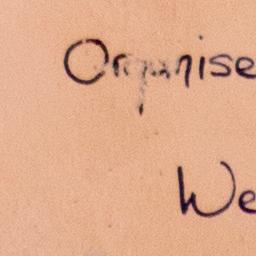 Organise
We